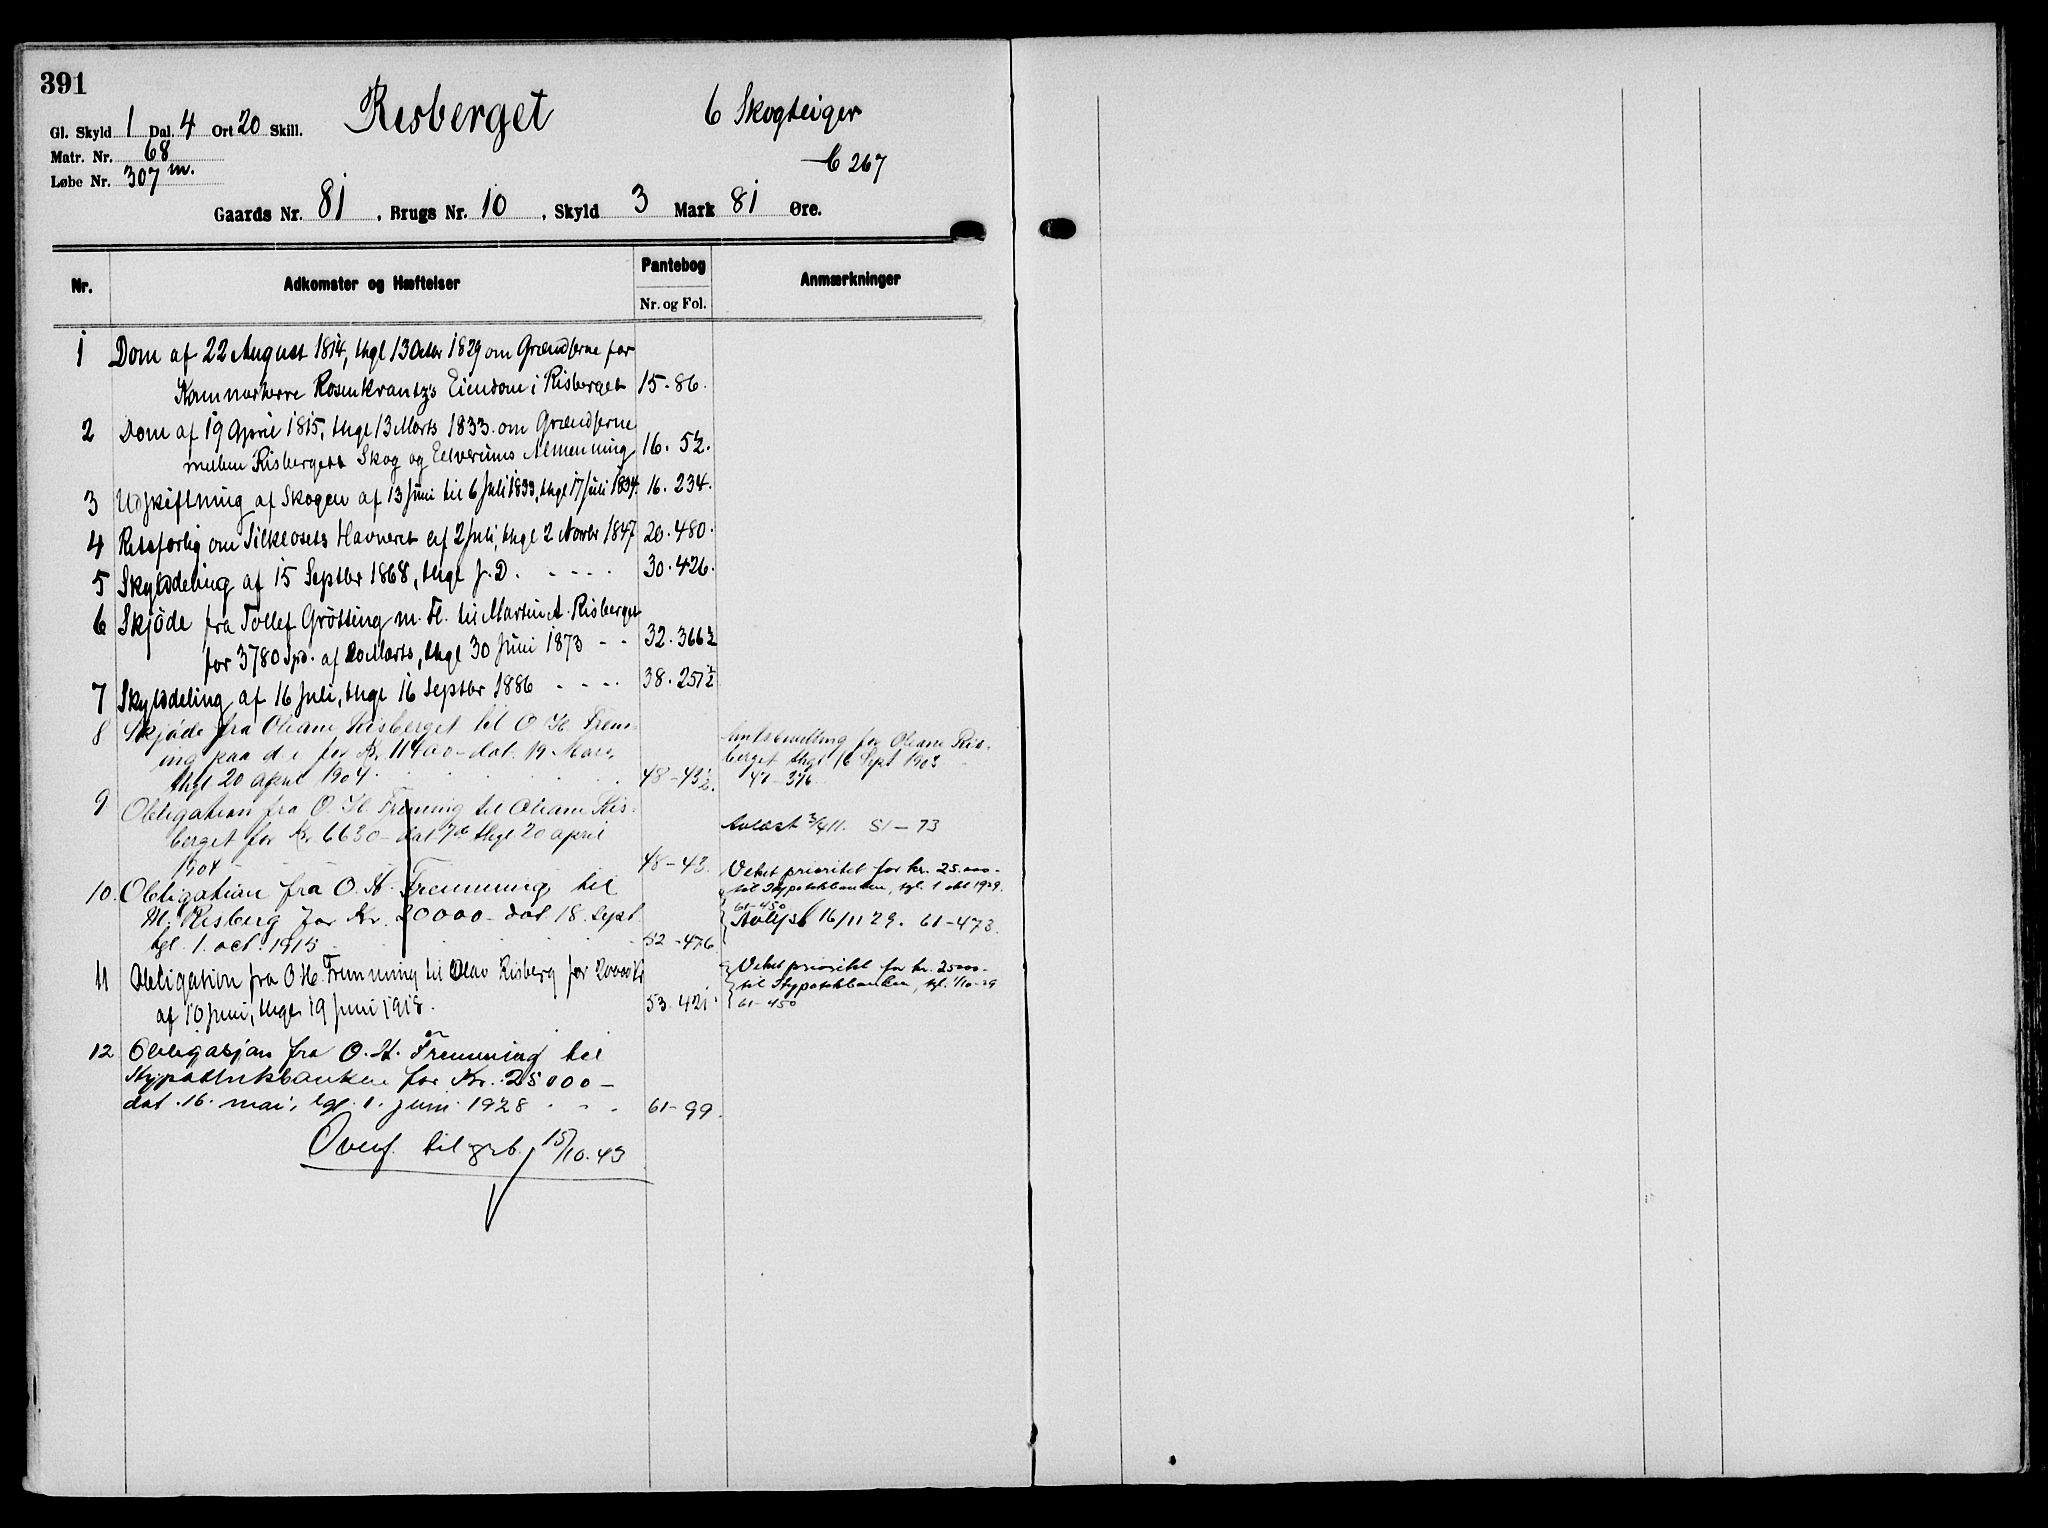 391
Gl. Skyld 1 Dal. 4 Ort 20 Skill. Risberget 6 Skogteiger
Matr. Nr. 68
Løbe Nr. 307 m. 267
Gaards Nr. 81, Brugs Nr. 10, Skyld 3 Mark 81 Øre.
Nr. Adkomster og Hæftelser Pantebog Anmærkninger
Nr. og Fol.
1 Dom af 22 August 1814, thgl 13 Octbr 1829 om Grændserne for
Kammerherre Rosenkrantz's Eiendom i Risberget 15. 86.
2 Dom af 19 April 1815, thgl 13 Marts 1833 om Grændserne
mellem Risbergets Skog og Elverums Almenning 16. 52.
3 Udskiftning af Skogen af 13 Juni til 6 Juli 1833, thgl 17 Juli 1834. 16. 234.
4 Retsforlig om Silkeosets Havneret af 2 Juli, thgl 2 Novbr 1847 20. 480.
5 Skylddeling af 15 Septbr 1868, thgl s. D. - - - - 30. 426.
6 Skjöde fra Tollef Grötting m. Fl. til Martin A. Risberget
for 3780 Spd. af 20 Marts, thgl 30 Juni 1873 - - 32. 366½
7 Skylddeling af 16 Juli, thgl 16 Septbr 1886 - - - - 38. 257½
8 Skjøde fra Oliane Risberget til O H Frem-
ing paa d. e for Kr 11400 - dat. 19 Mars,
thgl 20 april 1904 48-43½.
Risberget thgl 16 Sept 1903
47-376
9 Obligation fra O. H. Freming til Oliane Ris-
berget for Kr 6630 - dat 7de thgl 20 april
1904 48-43.
Avlæst 3/4 11. 51-73
10. Obligation fra O. H. Fremming til
M. Risberg for Kr. 20000 - dat 18. sept
tgl. 1. oct. 1915 52-476
Veket prioritet for kr. 25.000-
til Hypotekbanken, tgl. 1 okt 1929.
61-450
Avlyst 16/11 29. 61-473.
11 Obligation fra O H. Fremming til Olav Risberg for 20000 Kr
af 10 Juni, thgl 19 Juni 1918. 53. 421.
Veket prioritet for kr. 25000-
til Hypotekbanken, tgl. 1/10-29
61-450
12 Obligasjon fra O. H. Fremming til
Hypothekbanken for Kr. 25000 -
dat. 16. mai, tgl. 1. juni 1928 - - - 61-99.
Overf. til grb. 15/10. 43